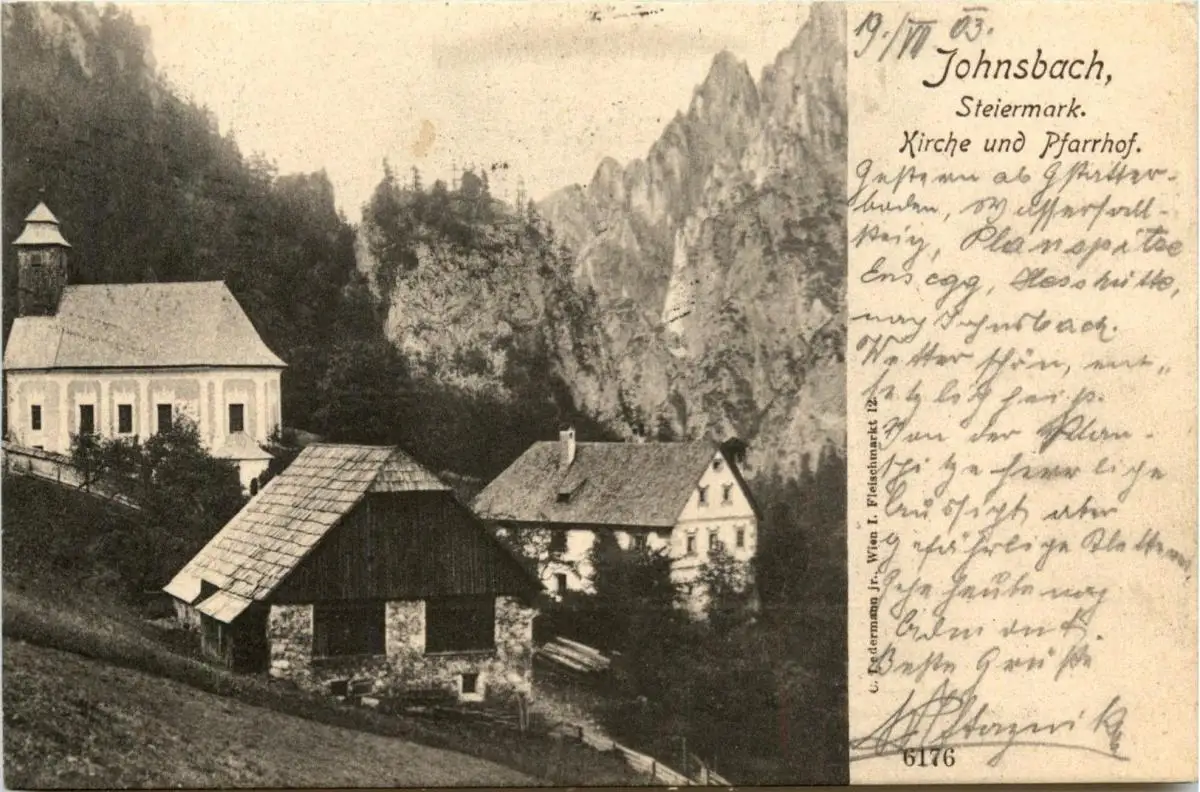 19./VII 03.
Johnsbach,
Steiermark.
Kirche und Pfarrhof.
Gestern ab Gstatter-
boden, Wasserfall-
steig, Planspitze
Ensegg, Hesshütte,
nach Johnsbach.
Wetter schön, ent-
setzlich heiß.
Von der Plan-
spitze herrliche
Aussicht aber
gefährliche Kletterei
Gehe heute nach
Admont.
Beste Grüße
C. Ledermann jr., Wien I. Fleischmarkt 12.
6176